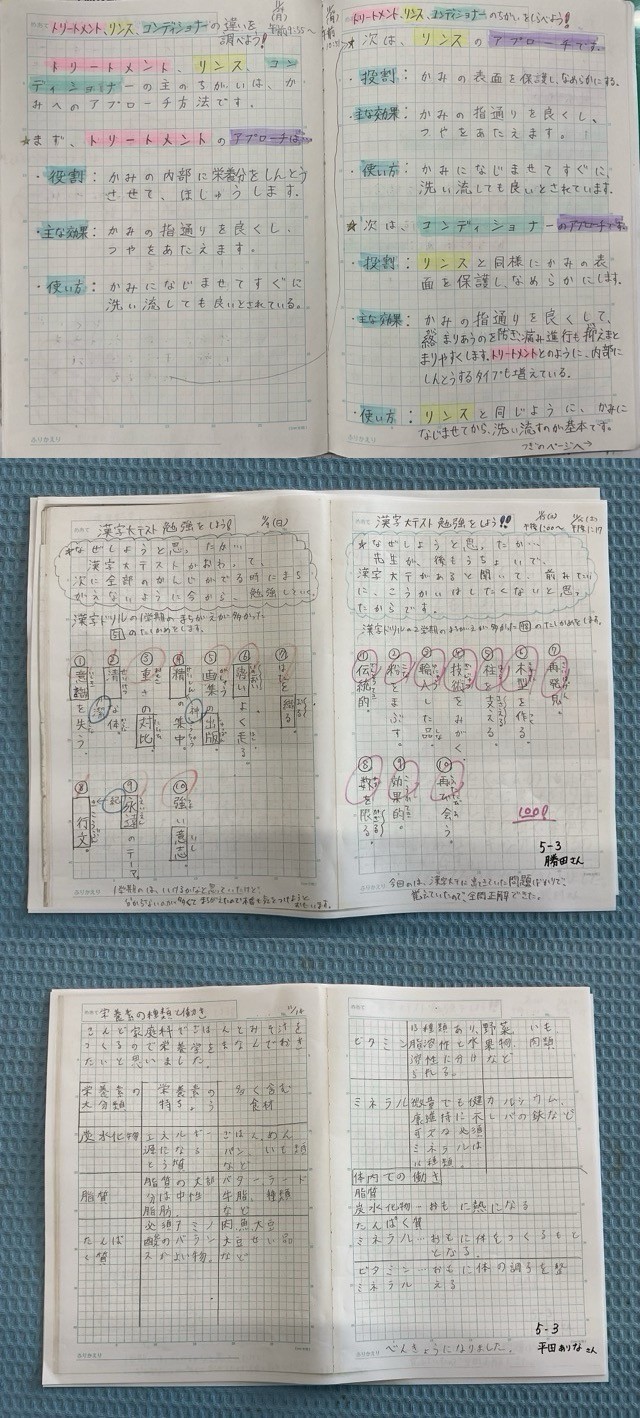 トリートメント、リンス、コンディショナーの違いを
調べよう!
トリートメント、リンス、コン
ディショナーの主のちがいは、か
みへのアプローチ方法です。
★まず、トリートメントのアプローチは…
・役割:かみの内部に栄養分をしんとう
させて、ほしゅうします。
・主な効果:かみの指通りを良くし、
つやをあたえます。
・使い方:かみになじませてすぐに
洗い流しても良いとされている。
ふりかえり
トリートメント、リンス、コンディショナーのちがいをしらべよう!
★次は、リンスのアプローチです。
・役割:かみの表面を保護し、なめらかにする。
・主な効果:かみの指通りを良くし、
つやをあたえます。
・使い方:かみになじませてすぐに、
洗い流しても良いとされています。
★次は、コンディショナーのアプローチは…
・役割:リンスと同様にかみの表
面を保護し、なめらかにします。
・主な効果:かみの指通りを良くして、
まりあうのを防ぎ、痛み進行も抑えまと
まりやすくします。トリートメントとのように、内部に
しんとうするタイプも増えている。
・使い方:リンスと同じように、かみに
なじませてから、洗い流すのが基本です。
つぎのページへ→
ふりかえり
めあて 漢字大テスト勉強をしよう!
★なぜしようと思ったか…
漢字大テストがおわって、
次に全部のかんじがでる時にまち
がえないように今から、勉強したい。
漢字ドリルの1学期のまちがえが多かった
回のたしかめをします。
① 意識を失う。
② 清な体
③ 重さの対比
④ 精の集中。
⑤ 画集の出版
⑥ 勢いよく走る。
⑦ はたを織る
⑧ 行文。
⑨ 永遠のテーマ。
⑩ 強い意志。
ふりかえり
1学期のは、いけるかなと思っていたけど、
めあて 漢字大テスト勉強をしよう!!
★なぜしようと思ったか…
先生が、後もうちょいで、
漢字大テがあると聞いて、前みたい
に、こうかいはしたくないと思っ
たからです。
漢字ドリルの2学期のまちがえが多かった回のたしかめをします。
① 伝統的。
② 粉をまぶす。
③ 輸入した品。
④ 技術をみがく。
⑤ 柱を支える。
⑥ 木型を作る。
⑦ 再発見。
⑧ 数を限る。
⑨ 効果的。
⑩ 再び会う。
100点
5-3
勝田さん
ふりかえり
今日のは、漢字大テに出てきていた問題ばかりで、
覚えていたので、全問正解できた。
めあて 栄養素の種類と働き
こんど家庭科でごはんとみそ汁を
つくるので栄養学をまなんでおき
たいと思いました。
栄養素の 栄養素の 多く含む
大分類 特ちょう 食材
炭水化物 エネルギー ごはん、めん
源になる パン、いも類
とう質 など
脂質の大部 バター、ラード
脂質 分は中性 牛脂、種類
脂肪。 など
必須アミノ 肉魚大豆
たんぱ 酸のバラン 大豆せい品
く質 スがよい物。 など
ふりかえり
13種類あり、 野菜、いも
ビタミン 脂溶性と水 果物、肉類
溶性に分け など
られる。
ミネラル 微量でも健 カルシウム、
康維持に不 レバの鉄など
可欠な必須
ミネラルは
16種類。
体内での働き
脂質
炭水化物…おもに熱になる
たんぱく質
ミネラル…おもに体をつくるもと
となる。
ビタミン…おもに体の調子を整
ミネラル える
5-3
平田ありなさん
ふりかえり
べんきょうになりました。